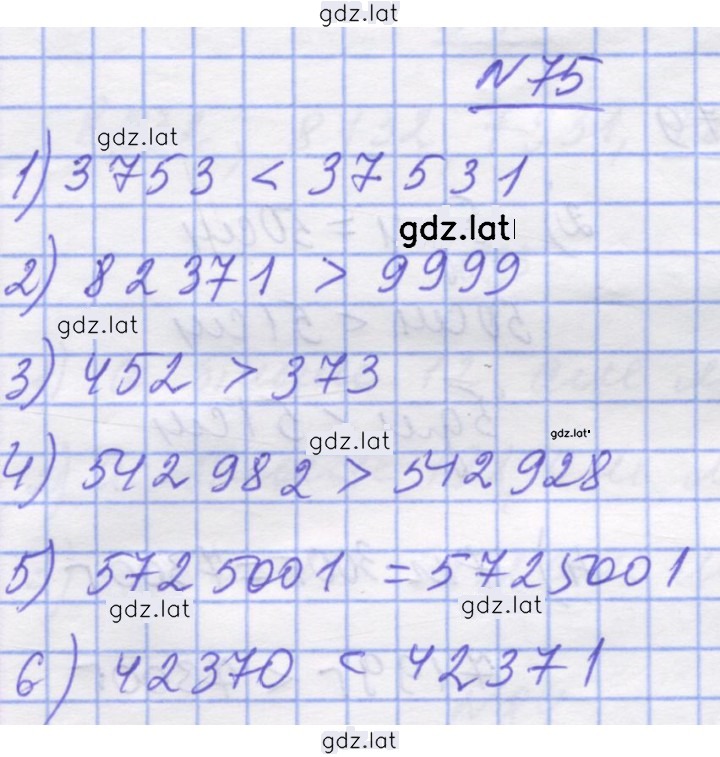 gdz.lat
N 75
gdz.lat
1) 3753 < 37531
gdz.lat
2) 82371 > 9999
gdz.lat
3) 452 > 373
gdz.lat
gdz.lat
4) 542982 > 542928
5) 5725001 = 5725001
gdz.lat
gdz.lat
6) 42370 < 42371
gdz.lat